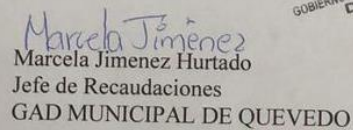 GOBIERNO
Marcela Jiménez
Marcela Jimenez Hurtado
Jefe de Recaudaciones
GAD MUNICIPAL DE QUEVEDO